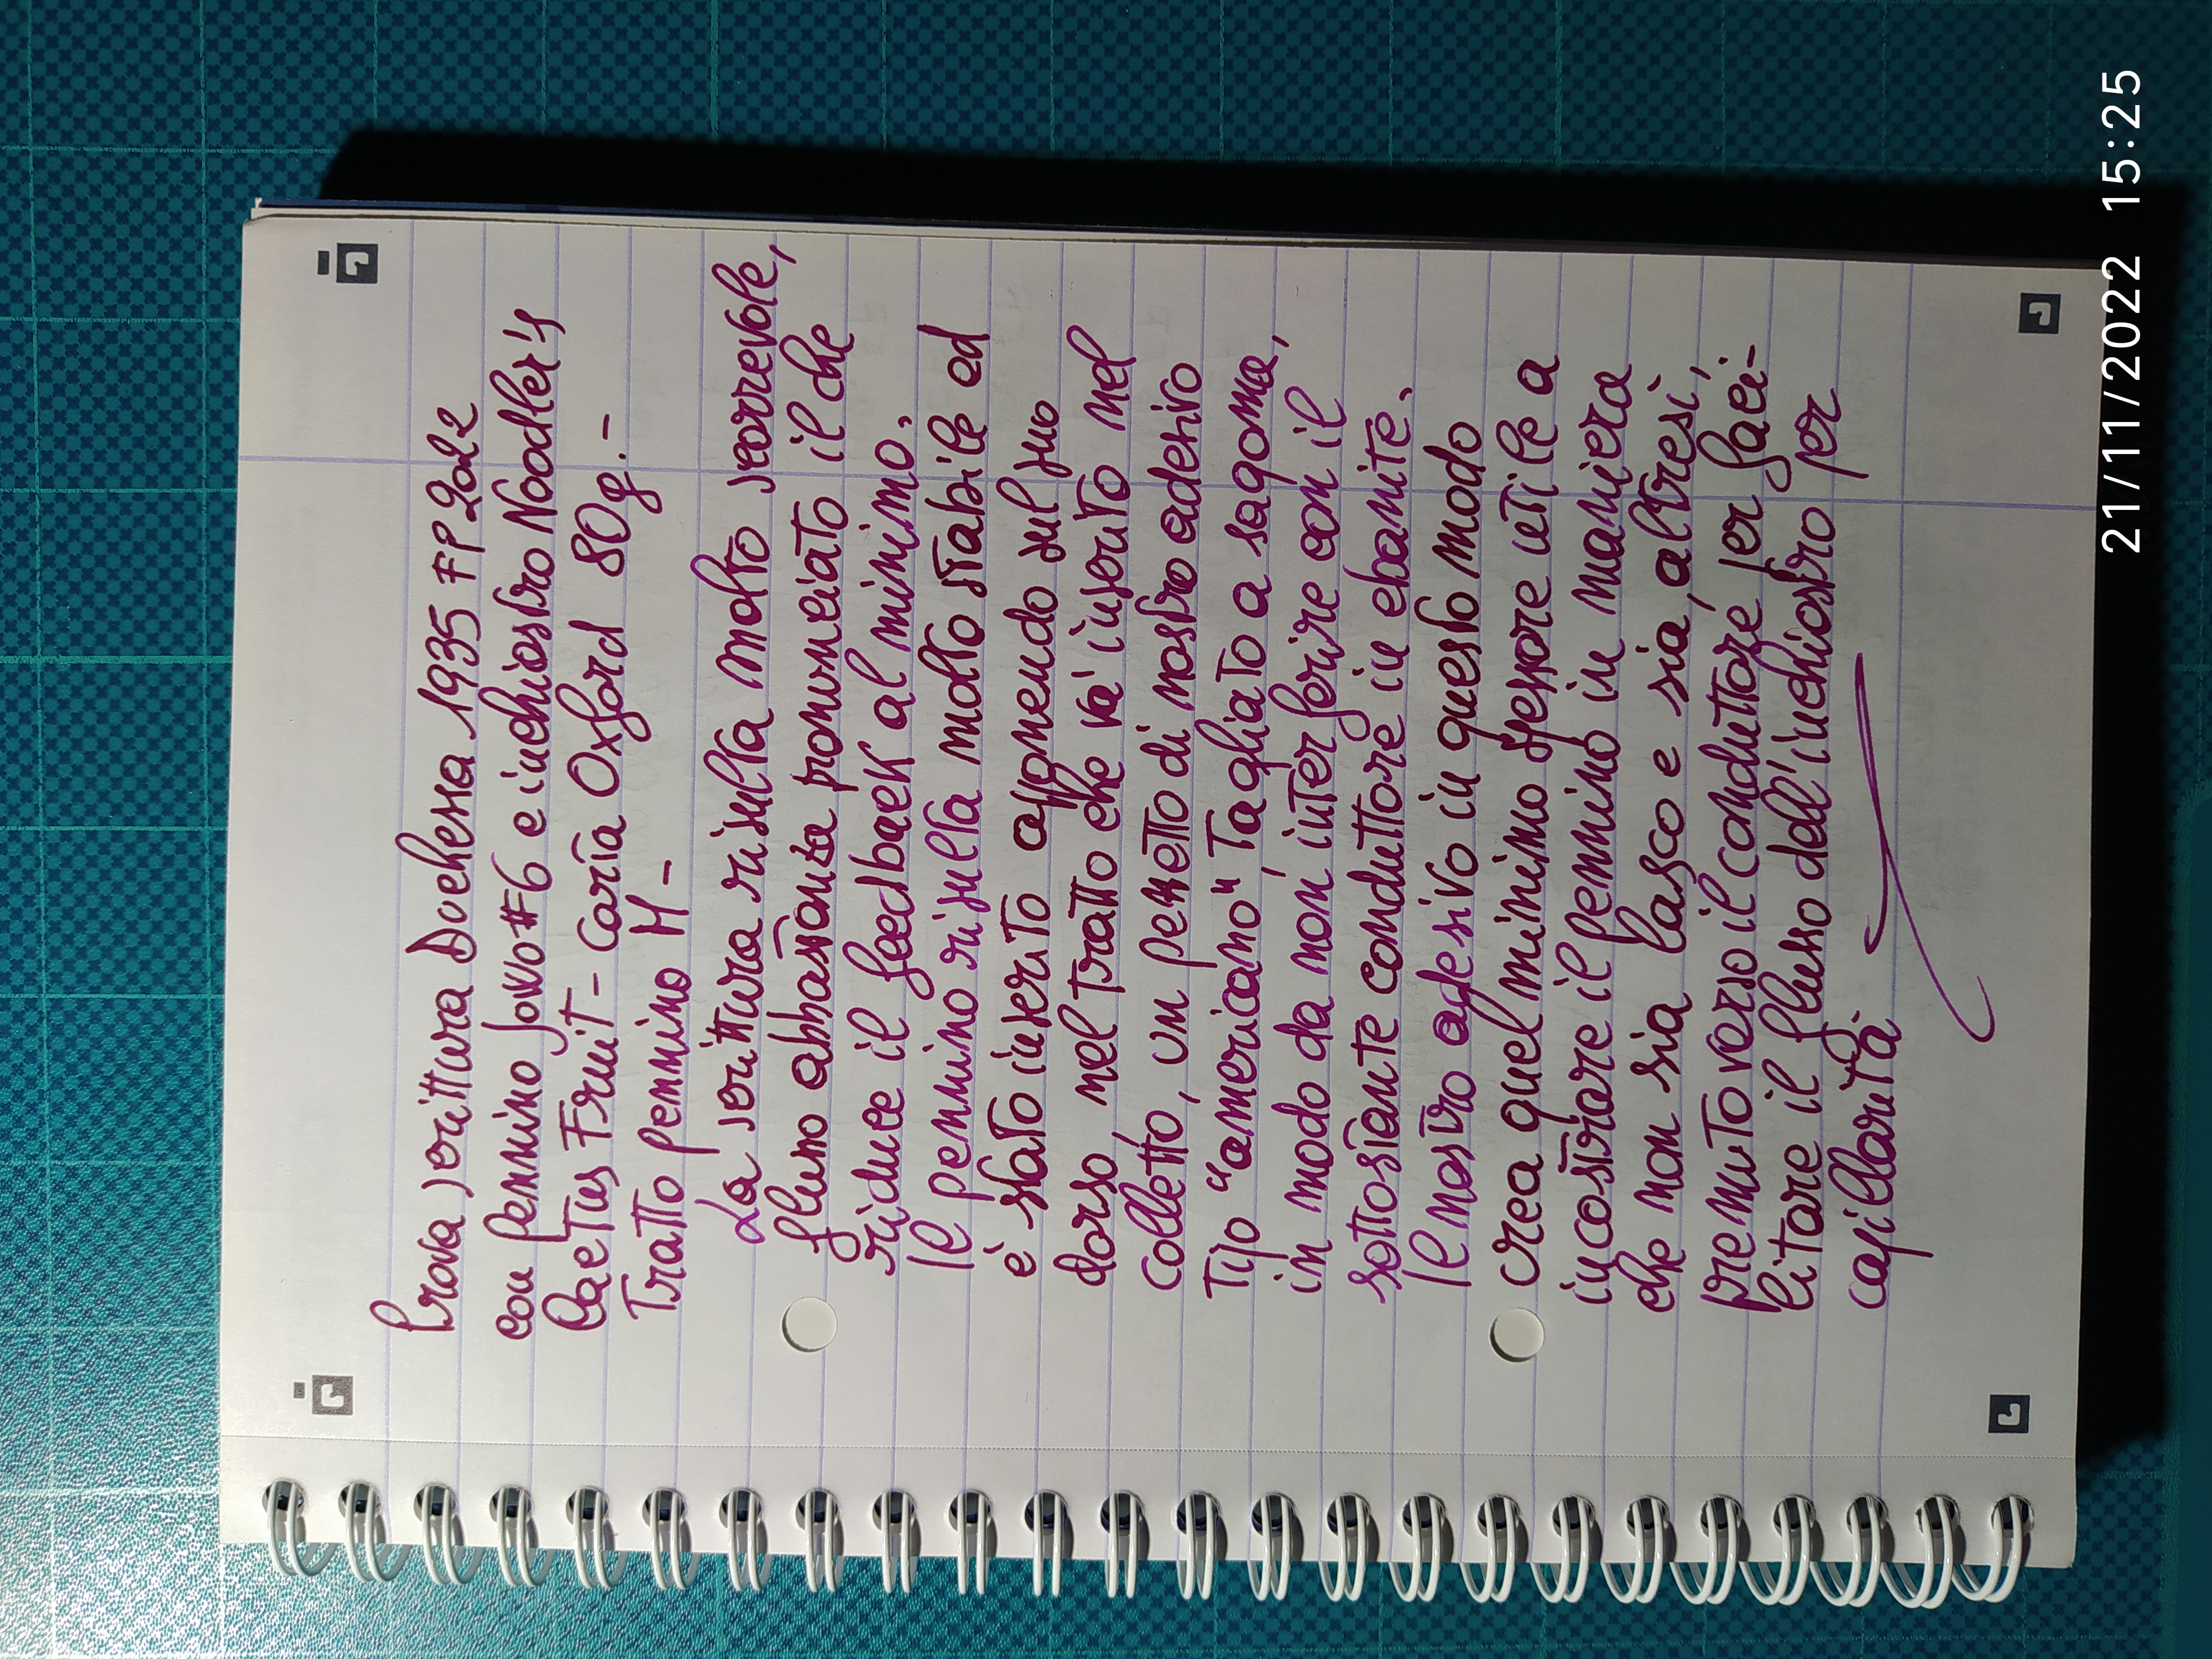 Prova scrittura Duchessa 1935 FP 2022
con pennino Jowo #6 e inchiostro Noodler's
Cactus Fruit - Carta Oxford 80g.-
Tratto pennino M -
La scrittura risulta molto scorrevole,
flusso abbastanza pronunciato il che
riduce il feedback al minimo.
Il pennino risulta molto stabile ed
è stato inserito apponendo sul suo
dorso nel tratto che va' inserito nel
colletto, un pezzetto di nastro adesivo
Tipo "americano" Tagliato a sagoma,
in modo da non interferire con il
sottostante conduttore in ebanite.
Il nastro adesivo in questo modo
crea quel minimo spessore utile a
incastrare il pennino in maniera
che non sia lasco e sia, altresì,
premuto verso il conduttore per faci-
litare il flusso dell'inchiostro per
capillarità.
21/11/2022 15:25